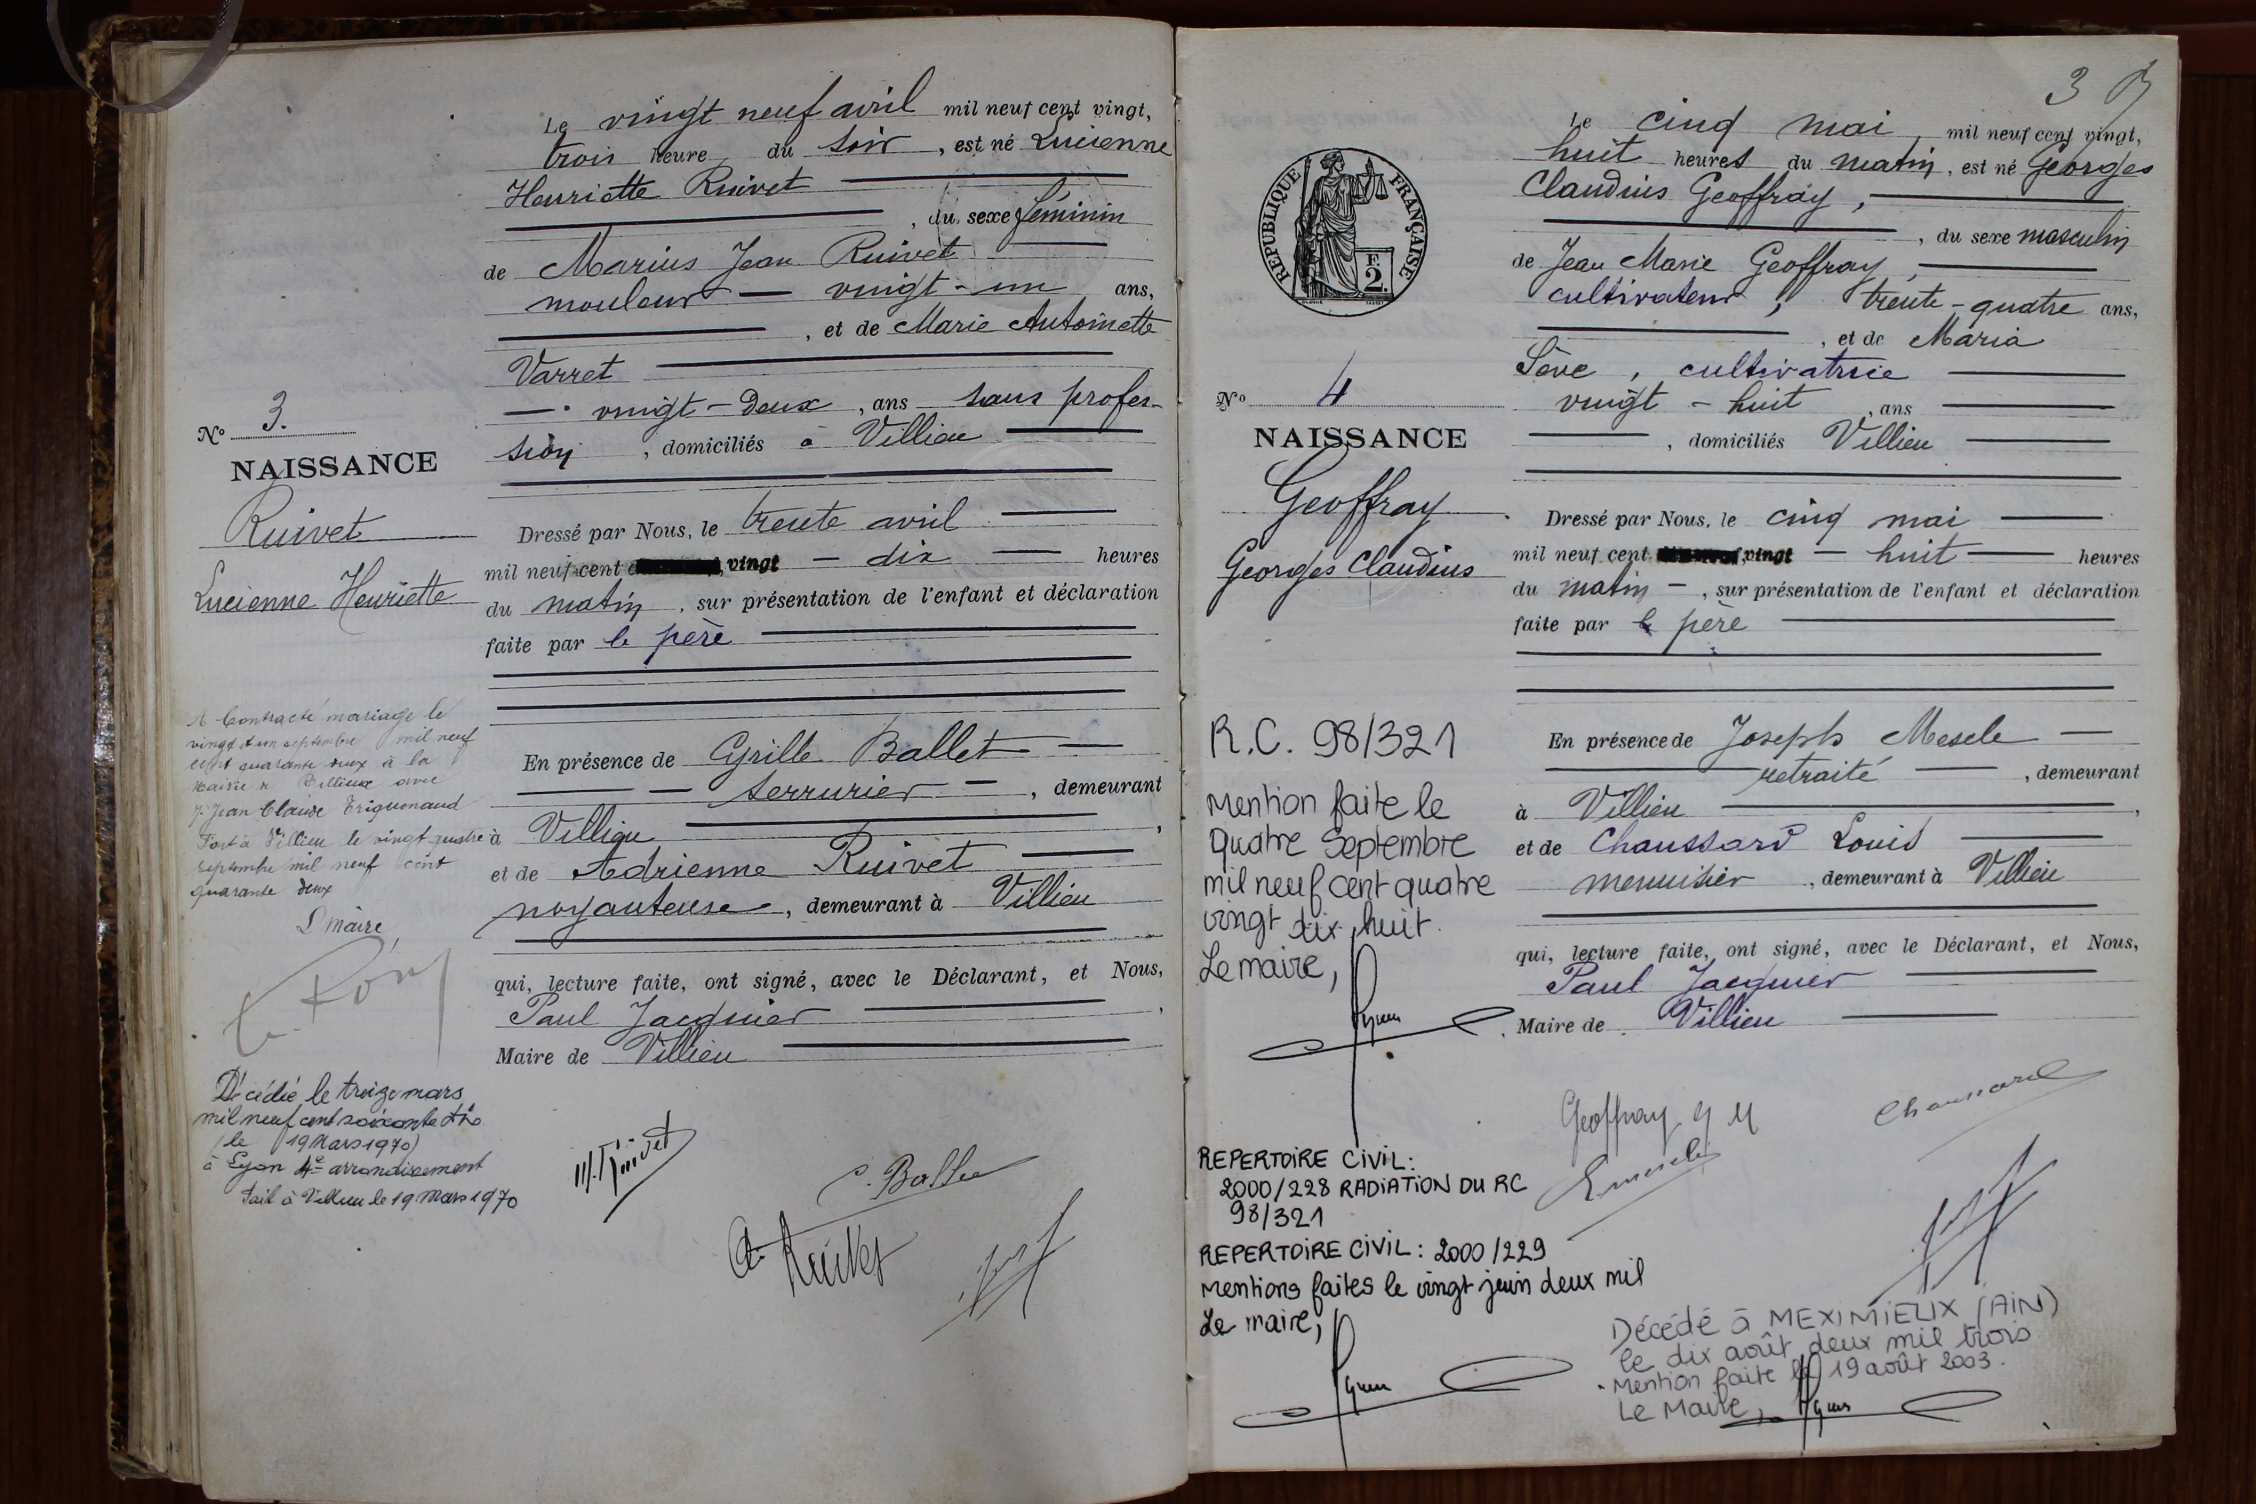 Le vingt neuf avril mil neuf cent vingt,
trois heure du soir, est né Lucienne
Henriette Ruivet
, du sexe féminin
de Marius Jean Ruivet
mouleur — vingt-un ans,
, et de Marie Antoinette
Varret
vingt-deux, ans sans profes-
sion, domiciliés à Villieu
N° 3.
NAISSANCE
Ruivet
Lucienne Henriette
Dressé par Nous, le trente avril
mil neuf cent vingt — dix — heures
du matin, sur présentation de l'enfant et déclaration
faite par le père
En présence de Cyrille Ballet
serrurier, demeurant
à Villieu,
et de Adrienne Ruivet
noyauteuse, demeurant à Villieu
qui, lecture faite, ont signé, avec le Déclarant, et Nous,
Paul Jacquier,
Maire de Villieu
A Contracté mariage le
vingt et un septembre mil neuf
cent quarante deux à la
Mairie de Villieu avec
Jean Claude Triguenaud
Fait à Villieu le vingt quatre
septembre mil neuf cent
quarante deux
L maire,
Décédée le treize mars
mil neuf cent soixante dix
(le 19 Mars 1970)
à Lyon 4e arrondissement
Fait à Villieu le 19 Mars 1970
M. Ruivet
C. Ballet
A. Ruivet
3
Le cinq mai, mil neuf cent vingt,
huit heures du matin, est né Georges
Claudius Geoffray,
, du sexe masculin
de Jean Marie Geoffray,
cultivateur, trente-quatre ans,
, et de Maria
Sève, cultivatrice
vingt-huit, ans
, domiciliés Villieu
RÉPUBLIQUE FRANÇAISE
F.
2.
N° 4
NAISSANCE
Geoffray
Georges Claudius
Dressé par Nous, le cinq mai
mil neuf cent vingt — huit — heures
du matin —, sur présentation de l'enfant et déclaration
faite par le père
En présence de Joseph Mesele
retraité, demeurant
à Villieu,
et de Chaussard Louis
menuisier, demeurant à Villieu
qui, lecture faite, ont signé, avec le Déclarant, et Nous,
Paul Jacquier
Maire de Villieu
R.C. 98/321
Mention faite le
quatre Septembre
mil neuf cent quatre
vingt dix huit.
Le maire,
REPERTOIRE CIVIL:
2000/228 RADIATION DU RC
98/321
REPERTOIRE CIVIL: 2000/229
Mentions faites le vingt juin deux mil
Le maire,
Geoffray J M
Chaussard
Décédé à MEXIMIEUX (AIN)
le dix août deux mil trois
Mention faite le 19 août 2003.
Le Maire,